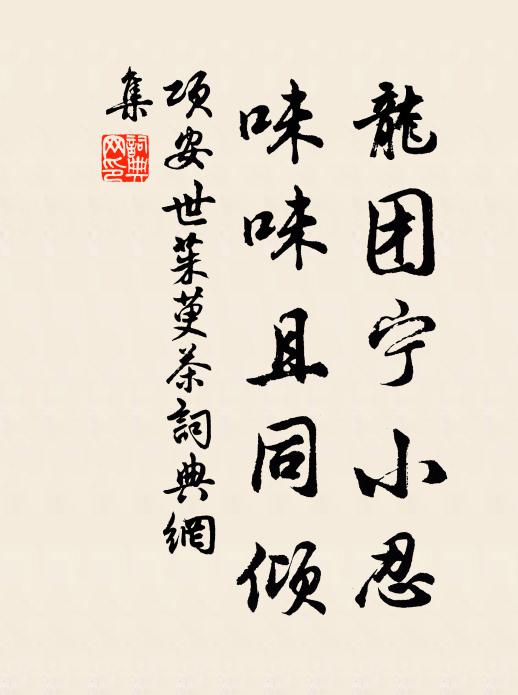 龍团宁小忍
味味且同傾
項安世茱萸茶詞典網
集
詞典網印